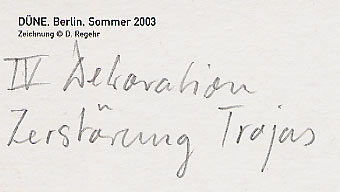 DÜNE. Berlin. Sommer 2003
Zeichnung © D. Regehr
IV Dekoration
Zerstörung Trojas